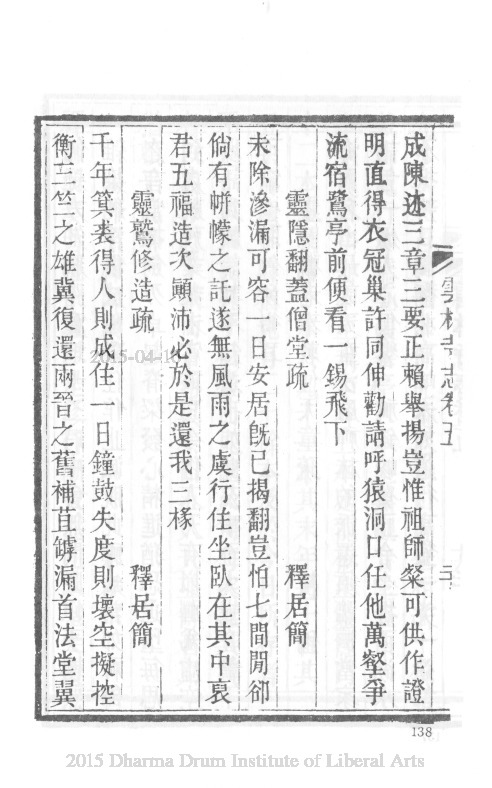 雲林寺志卷五
成陳迹三章三要正賴舉揚豈惟祖師粲可供作證
明直得衣冠巢許同伸勸請呼猿洞口任他萬壑爭
流宿鷺亭前便看一錫飛下
靈隱翻蓋僧堂疏 釋居簡
未除滲漏可容一日安居旣已揭翻豈怕七間閒卻
倘有帡幪之託遂無風雨之虞行住坐臥在其中裒
君五福造次顚沛必於是還我三椽
靈鷲修造疏 釋居簡
千年箕裘得人則成住一日鐘鼓失度則壞空擬控
衡三竺之雄冀復還兩晉之舊補苴罅漏首法堂翼
2015-04-10
138
2015 Dharma Drum Institute of Liberal Arts